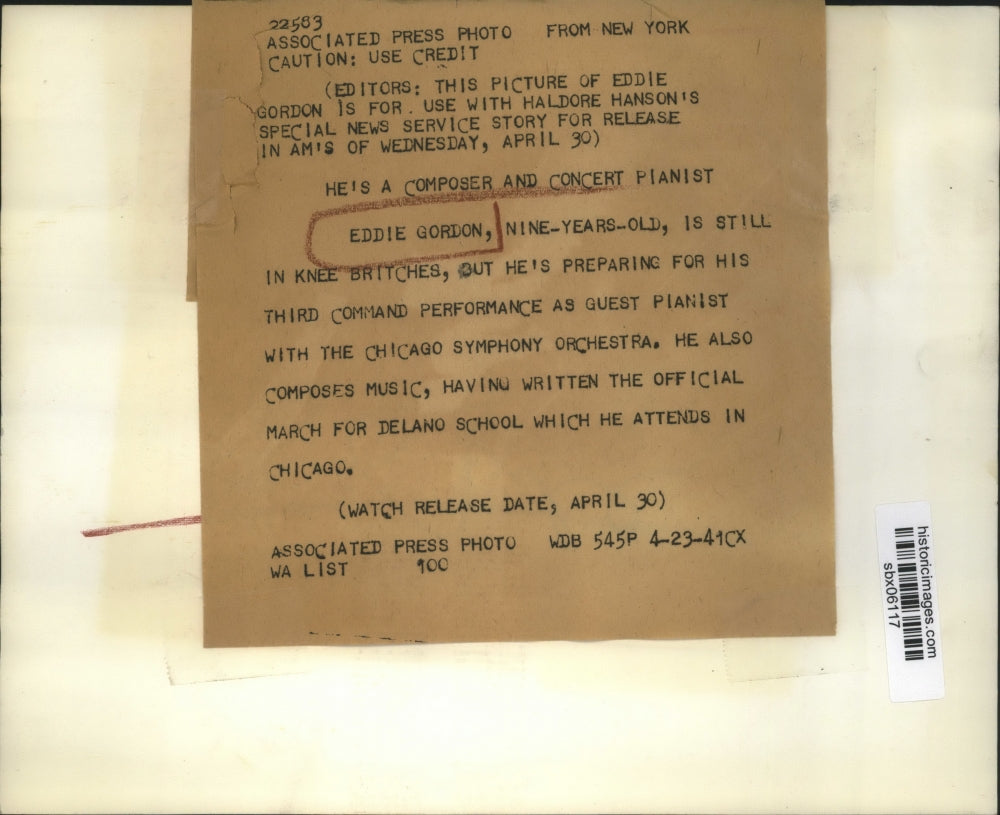 22583
ASSOCIATED PRESS PHOTO FROM NEW YORK
CAUTION: USE CREDIT
(EDITORS: THIS PICTURE OF EDDIE
GORDON IS FOR. USE WITH HALDORE HANSON'S
SPECIAL NEWS SERVICE STORY FOR RELEASE
IN AM'S OF WEDNESDAY, APRIL 30)
HE'S A COMPOSER AND CONCERT PIANIST
EDDIE GORDON, NINE-YEARS-OLD, IS STILL
IN KNEE BRITCHES, BUT HE'S PREPARING FOR HIS
THIRD COMMAND PERFORMANCE AS GUEST PIANIST
WITH THE CHICAGO SYMPHONY ORCHESTRA. HE ALSO
COMPOSES MUSIC, HAVING WRITTEN THE OFFICIAL
MARCH FOR DELANO SCHOOL WHICH HE ATTENDS IN
CHICAGO.
(WATCH RELEASE DATE, APRIL 30)
ASSOCIATED PRESS PHOTO WDB 545P 4-23-41CX
WA LIST 100
historicimages.com
sbx06117